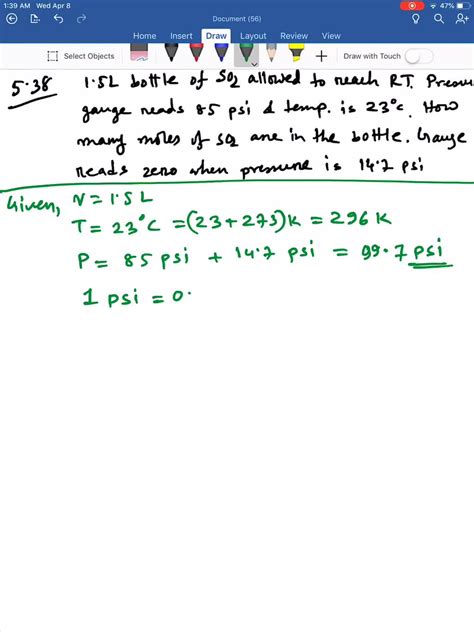 1:39 AM Wed Apr 8
47%
Document (56)
Home Insert Draw Layout Review View
Select Objects
Draw with Touch
5.38 1.5L bottle of SO2 allowed to reach RT. Pressu
gauge reads 85 psi & temp. is 23°C. How
many moles of SO2 are in the bottle. Gauge
reads zero when pressure is 14.7 psi
Given, V = 1.5 L
T = 23°C = (23+273)K = 296 K
P = 85 psi + 14.7 psi = 99.7 psi
1 psi = 0.